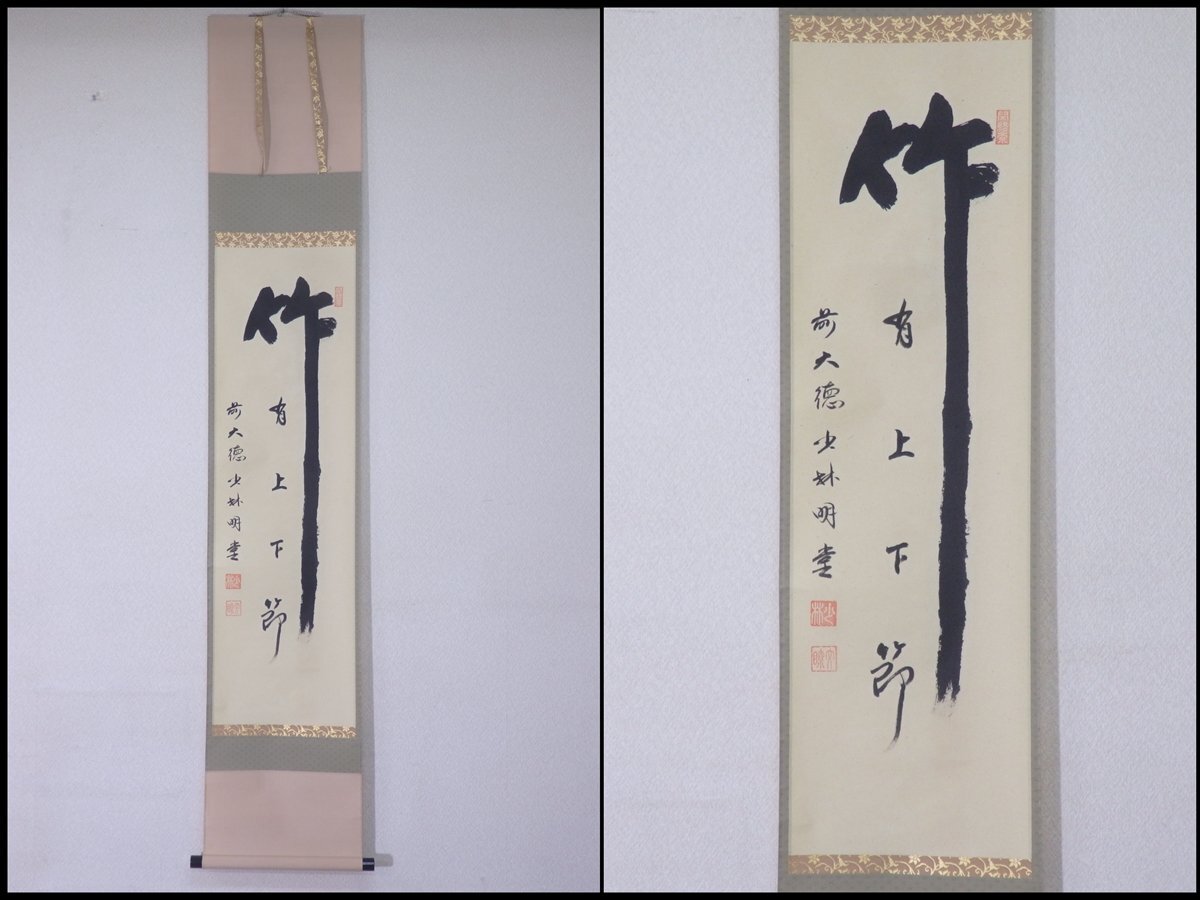 竹
有上下節
前大德少林明堂
竹
有上下節
前大德少林明堂